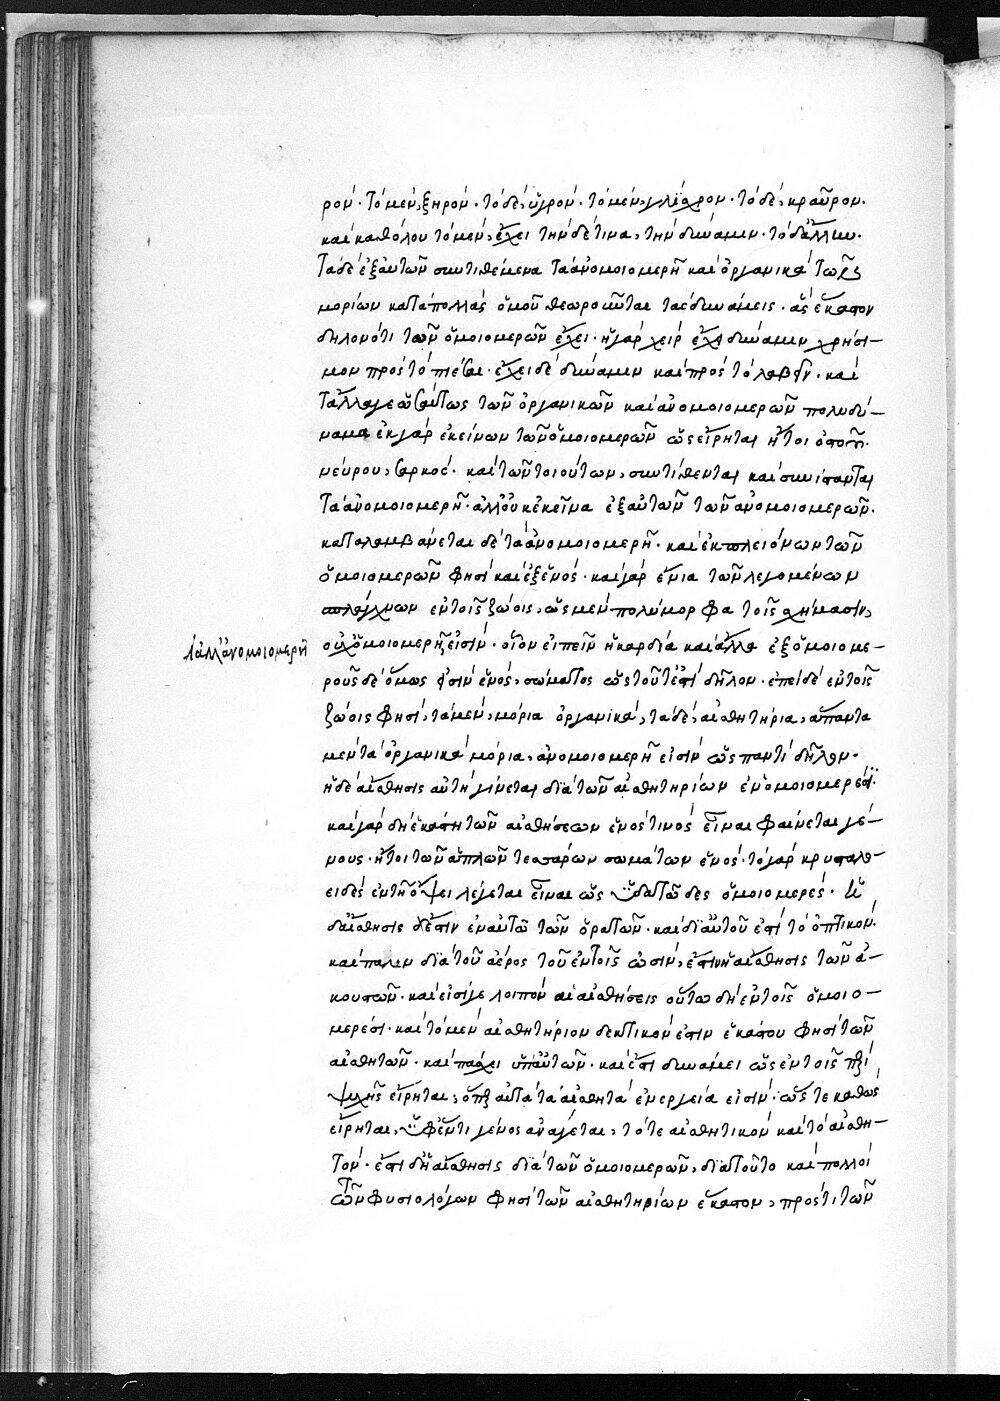 ρόν· τὸ μὲν, ξηρόν· τὸ δὲ, ὑγρόν· τὸ μὲν, γλίσχρον· τὸ δὲ, κραῦρον·
καὶ καθόλου τὸ μὲν, ἔχει τήν δέ τινα, τὴν δύναμιν· τὸ δ' ἄλλην·
Τὰ δὲ ἐξ αὐτῶν συντιθέμενα τὰ ἀνομοιομερῆ καὶ ὀργανικὰ τῶν
μορίων κατὰ πολλὰς ὁμοῦ θεωροῦνται τὰς δυνάμεις· ἃς ἕκαστον
δηλονότι τῶν ὁμοιομερῶν ἔχει· ἡ γὰρ χεὶρ ἔχει δύναμιν χρήσι-
μον πρὸς τὸ πιέσαι· ἔχει δὲ δύναμιν καὶ πρὸς τὸ λαβεῖν· καὶ
Τἄλλα γε ὡσαύτως τῶν ὀργανικῶν καὶ ἀνομοιομερῶν πολυδύ-
ναμα ἐκ γὰρ ἐκείνων τῶν ὁμοιομερῶν ὡς εἴρηται ἤτοι ὀστοῦ·
νεύρου, σαρκός· καὶ τῶν τοιούτων, συντίθενται καὶ συνίστανται
Τὰ ἀνομοιομερῆ· ἀλλ' οὐκ ἐκεῖνα ἐξ αὐτῶν τῶν ἀνομοιομερῶν·
καταλαμβάνεται δὲ τὰ ἀνομοιομερῆ· καὶ ἐκ πλειόνων τῶν
ὁμοιομερῶν φησὶ καὶ ἐξ ἑνός· καὶ γὰρ ἔνια τῶν λεγομένων
σπλάγχνων ἐν τοῖς ζώοις, ὡς μὲν πολύμορφα τοῖς σχήμασιν,
οὐχ ὁμοιομερῆ εἰσίν· οἷον εἰπεῖν ἡ καρδία καὶ ἄλλα ἐξ ὁμοιομε-
ἀλλ' ἀνομοιομερῆ
ροῦς δὲ ὅμως εἰσὶν ἑνὸς, σώματος ὡς τοῦτ' ἐστὶ δῆλον· ἐπεὶ δὲ ἐν τοῖς
ζώοις φησὶ, τὰ μὲν, μόρια ὀργανικὰ, τὰ δὲ, αἰσθητήρια, ἅπαντα
μὲν τὰ ὀργανικὰ μόρια, ἀνομοιομερῆ εἰσὶν ὡς παντὶ δῆλον·
ἡ δὲ αἴσθησις αὐτὴ γίνεται διὰ τῶν αἰσθητηρίων ἐν ὁμοιομερέσι·
καὶ γὰρ δὴ ἑκάστη τῶν αἰσθήσεων ἑνός τινος εἶναι φαίνεται γέ-
νους· ἤτοι τῶν ἁπλῶν τεσσάρων σωμάτων ἑνός· τὸ γὰρ κρυσταλλο-
ειδὲς ἐν τῇ ὄψει λέγεται εἶναι ὡς ὑδατῶδες ὁμοιομερές· ἡ
δ' αἴσθησίς ἐστιν ἐν αὐτῷ τῶν ὁρατῶν· καὶ δι' αὐτοῦ ἐστὶ τὸ ὀπτικόν·
καὶ πάλιν διὰ τοῦ ἀέρος τοῦ ἐν τοῖς ὠσὶν, ἐστὶν ἡ αἴσθησις τῶν ἀ-
κουστῶν· καὶ εἰσί γε λοιπὸν αἱ αἰσθήσεις οὕτω δὴ ἐν τοῖς ὁμοιο-
μερέσι· καὶ τὸ μὲν αἰσθητήριον δεκτικόν ἐστιν ἑκάστου φησὶ τῶν
αἰσθητῶν· καὶ πάσχει ὑπ' αὐτῶν· καὶ ἔστι δυνάμει ὡς ἐν τοῖς περὶ
ψυχῆς εἴρηται, ὅπερ αὐτὰ τὰ αἰσθητὰ ἐνεργείᾳ εἰσίν· ὥστε καθὼς
εἴρηται, ὑφ' ἕν τι γένος ἀνάγεται, τό τε αἰσθητικὸν καὶ τὸ αἰσθη-
τόν· ἔστι δὴ ἡ αἴσθησις διὰ τῶν ὁμοιομερῶν, διὰ τοῦτο καὶ πολλοὶ
τῶν φυσιολόγων φησὶ τῶν αἰσθητηρίων ἕκαστον, πρός τι τῶν